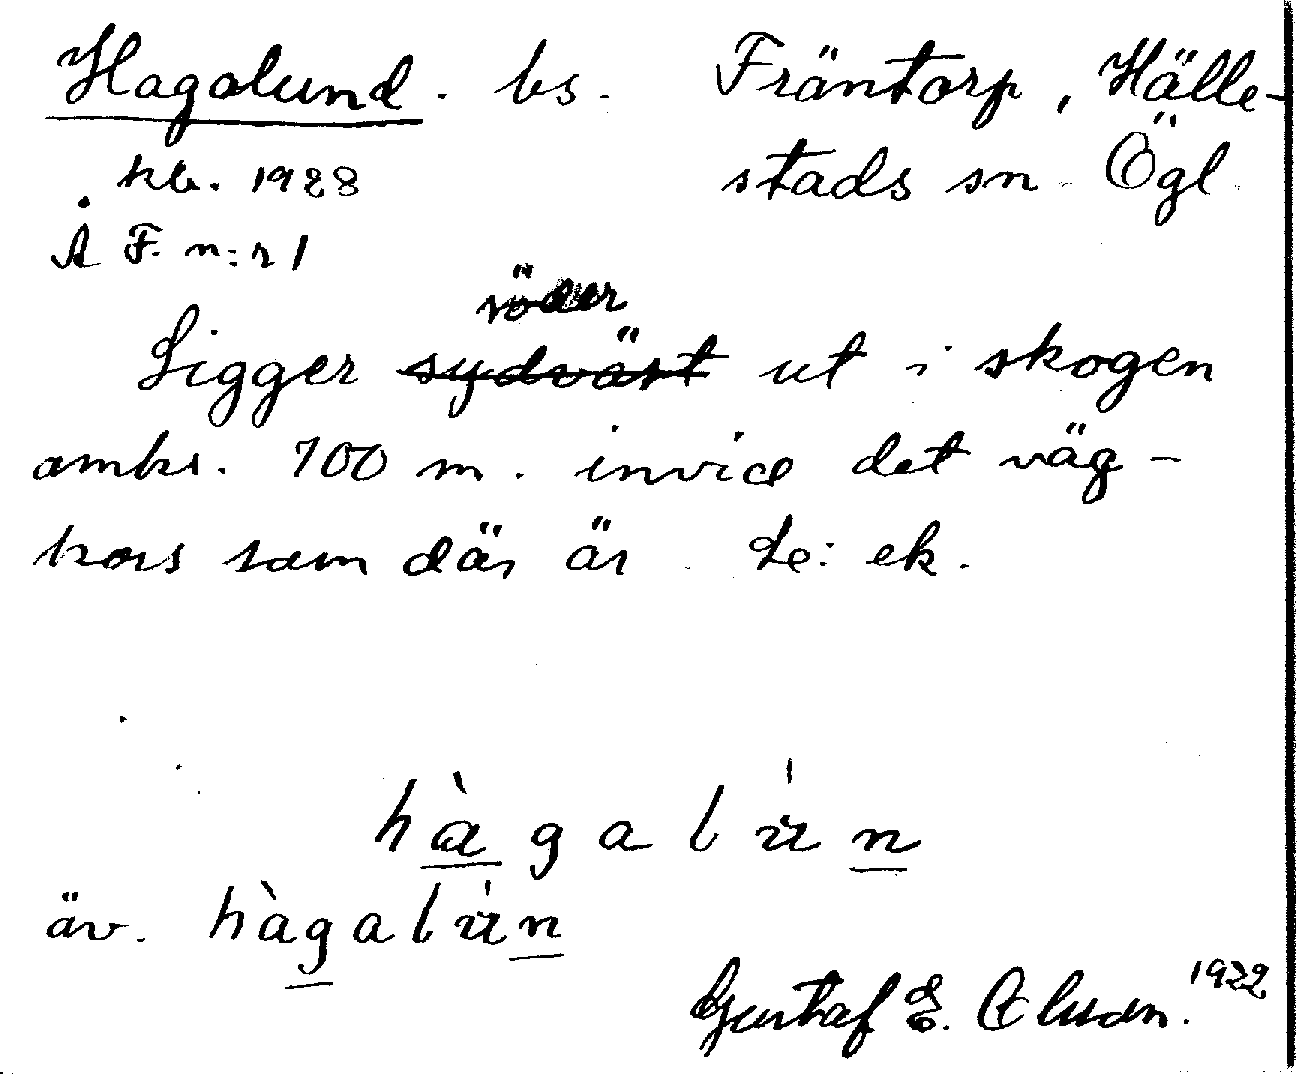 Hagalund. bs. Fräntorp, Hälle-
stads sn. Ögl.
kb. 1928
Å F. n:r 1
söder
Ligger sydväst ut i skogen
omkr. 700 m. invid det väg-
kors som där är. Le: ek.
hàgalu̍n
äv. hàgalu̍n
Gustaf E. Olsson. 1922